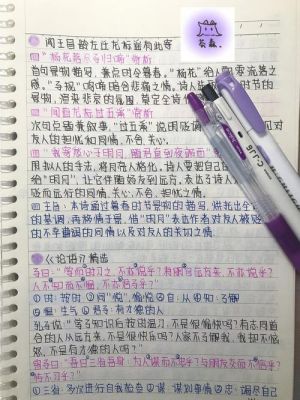 闻王昌龄左迁龙标遥有此寄
"杨花落尽子规啼"赏析
首句景物描写,兼点时令暮春。"杨花"给人飘零流落之
感。"子规"啼鸣
的景物,渲染悲哀的氛围,奠定全诗
"闻道龙标过五溪"赏析
次句总叠兼叙事。"过五溪"说明
友的担忧和同情,不舍、关心。
"我寄愁心与明月,随君直到夜郎西"
用拟人的手法,将月亮人格化。诗人要把自己
给"明月",让它伴随友到远方,表达了诗人
友而远谪的同情、关心、不舍、担忧之情。
主旨:本诗通过暮春时节景物的描写,烘托出全
的基调,再将情于景,借"明月"表达作者对友人被贬
的不幸遭遇的同情以及对友人的关切之情。
《论语》精选
子曰:"学而时习之,不亦说乎?有朋自远方来,不亦乐乎?
人不知而不愠,不亦君子乎?"
①时:按时 ②说:同"悦",愉悦 ③自:从 ④知:了解
⑤愠:生气 ⑥君子:有才德的人
孔子说:"学了知识后按时温习,不是很愉快吗?有志同道
合的人从远方来,不是很快乐吗?人家不了解我,我却不恼
怒,不是有才德的人吗?"
曾子曰:"吾日三省吾身:为人谋而不忠乎?与朋友交而不信乎?
传不习乎?"
①三省:多次进行自我检查 ②谋:谋划事情 ③忠:竭尽自己